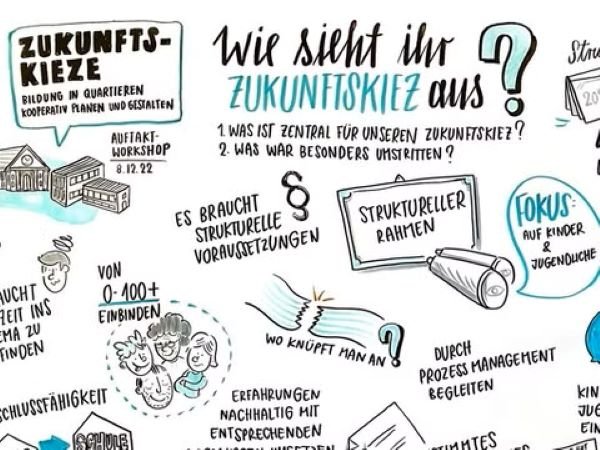 ZUKUNFTS-
KIEZE
BILDUNG IN QUARTIEREN
KOOPERATIV PLANEN UND GESTALTEN
AUFTAKT-
WORKSHOP
8.12.22
Wie sieht ihr
ZUKUNFTSKIEZ aus ?
1. WAS IST ZENTRAL FÜR UNSEREN ZUKUNFTSKIEZ?
2. WAS WAR BESONDERS UMSTRITTEN?
Stru
20
ES BRAUCHT
STRUKTURELLE
VORAUSSETZUNGEN
§
STRUKTURELLER
RAHMEN
FOKUS:
AUF KINDER
&
JUGENDLICHE
AUCHT
ZEIT INS
EMA ZU
FINDEN
VON
0-100+
EINBINDEN
WO KNÜPFT MAN AN ?
DURCH
PROZESS MANAGEMENT
BEGLEITEN
SCHLUSSFÄHIGKEIT
SCHULE
ERFAHRUNGEN
NACHHALTIG MIT
ENTSPRECHENDEN
KIN
JUG
EIN
STIMMTES